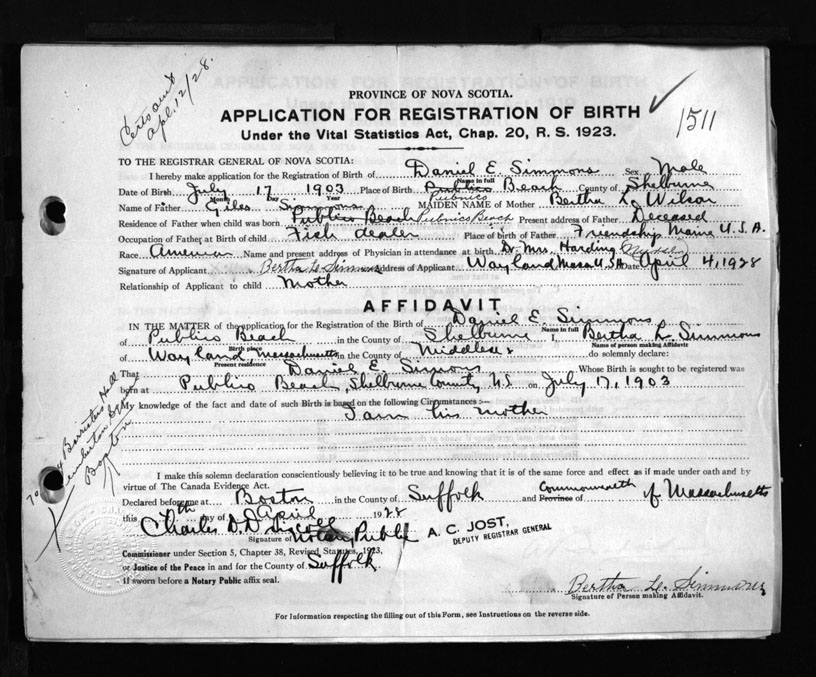 Certs aut
Apl. 12/28.
PROVINCE OF NOVA SCOTIA.
APPLICATION FOR REGISTRATION OF BIRTH
1511
Under the Vital Statistics Act, Chap. 20, R. S. 1923.
TO THE REGISTRAR GENERAL OF NOVA SCOTIA:
I hereby make application for the Registration of Birth of Daniel E. Simmons Sex Male
Name in full
Date of Birth July 17 1903 Place of Birth Publico Beach County of Shelburne
Month Day Year Pubnico
Name of Father Giles Simmons MAIDEN NAME of Mother Bertha L. Wilson
Residence of Father when child was born Publico Beach Pubnico Beach Present address of Father Deceased
Occupation of Father at Birth of child Fish dealer Place of birth of Father Friendship Maine U.S.A.
Race American Name and present address of Physician in attendance at birth Dr. Mrs. Harding
Signature of Applicant Bertha L. Simmons Address of Applicant Wayland Mass U.S.A. Date April 4, 1928
Relationship of Applicant to child Mother
AFFIDAVIT
IN THE MATTER of the application for the Registration of the Birth of Daniel E. Simmons
Name in full
of Publico Beach in the County of Shelburne I, Bertha L. Simmons
Birth place Name of person making Affidavit
of Wayland, Massachusetts in the County of Middlesex do solemnly declare:
Present residence
That Daniel E. Simmons Whose Birth is sought to be registered was
born at Publico Beach, Shelburne County, N.S. on July 17, 1903
My knowledge of the fact and date of such Birth is based on the following Circumstances :—
I am his mother
To Barristers Hall
Pemberton Sq
Boston
I make this solemn declaration conscientiously believing it to be true and knowing that it is of the same force and effect as if made under oath and by
virtue of The Canada Evidence Act.
Declared before me at Boston in the County of Suffolk and Province of Commonwealth of Massachusetts
this th day of April 1928
Charles D. Driscoll
Signature of Notary Public
A. C. JOST,
DEPUTY REGISTRAR GENERAL
Commissioner under Section 5, Chapter 38, Revised Statutes, 1923,
or Justice of the Peace in and for the County of Suffolk.
If sworn before a Notary Public affix seal.
Bertha L. Simmons
Signature of Person making Affidavit.
For Information respecting the filling out of this Form, see Instructions on the reverse side.